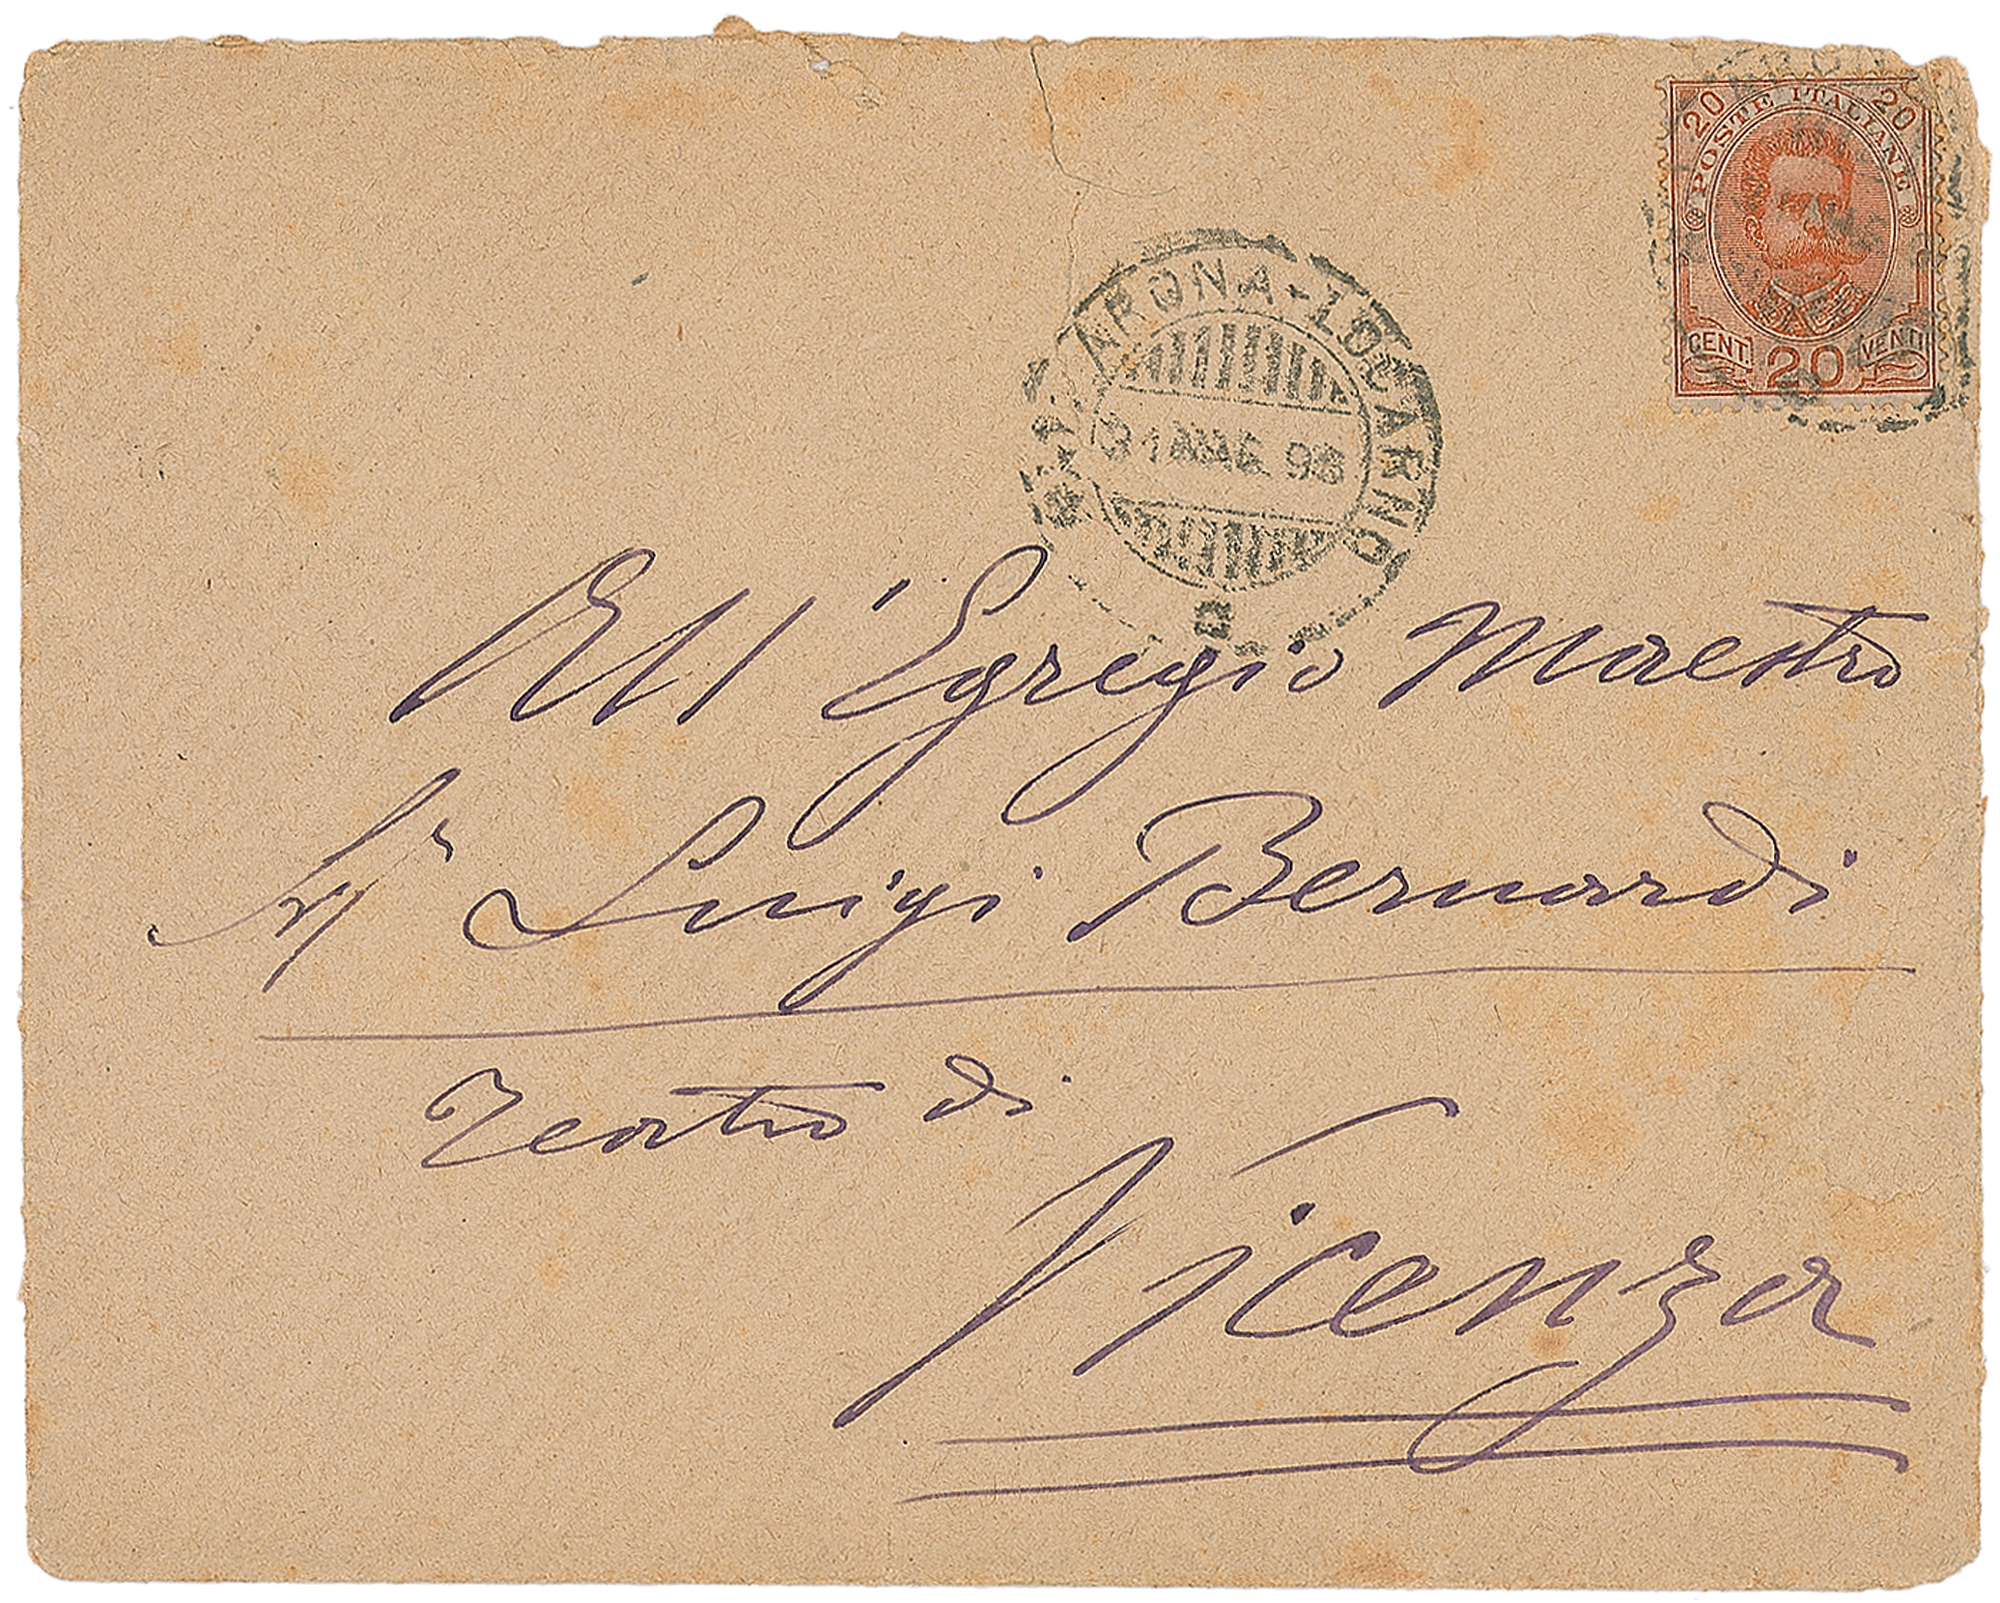 20 POSTE ITALIANE 20
CENT. 20 VENTI
ARONA-LOCARNO
31 MAG 98
2
All'Egregio Maestro
Sigr Luigi Bernardi
Teatro di
Vicenza